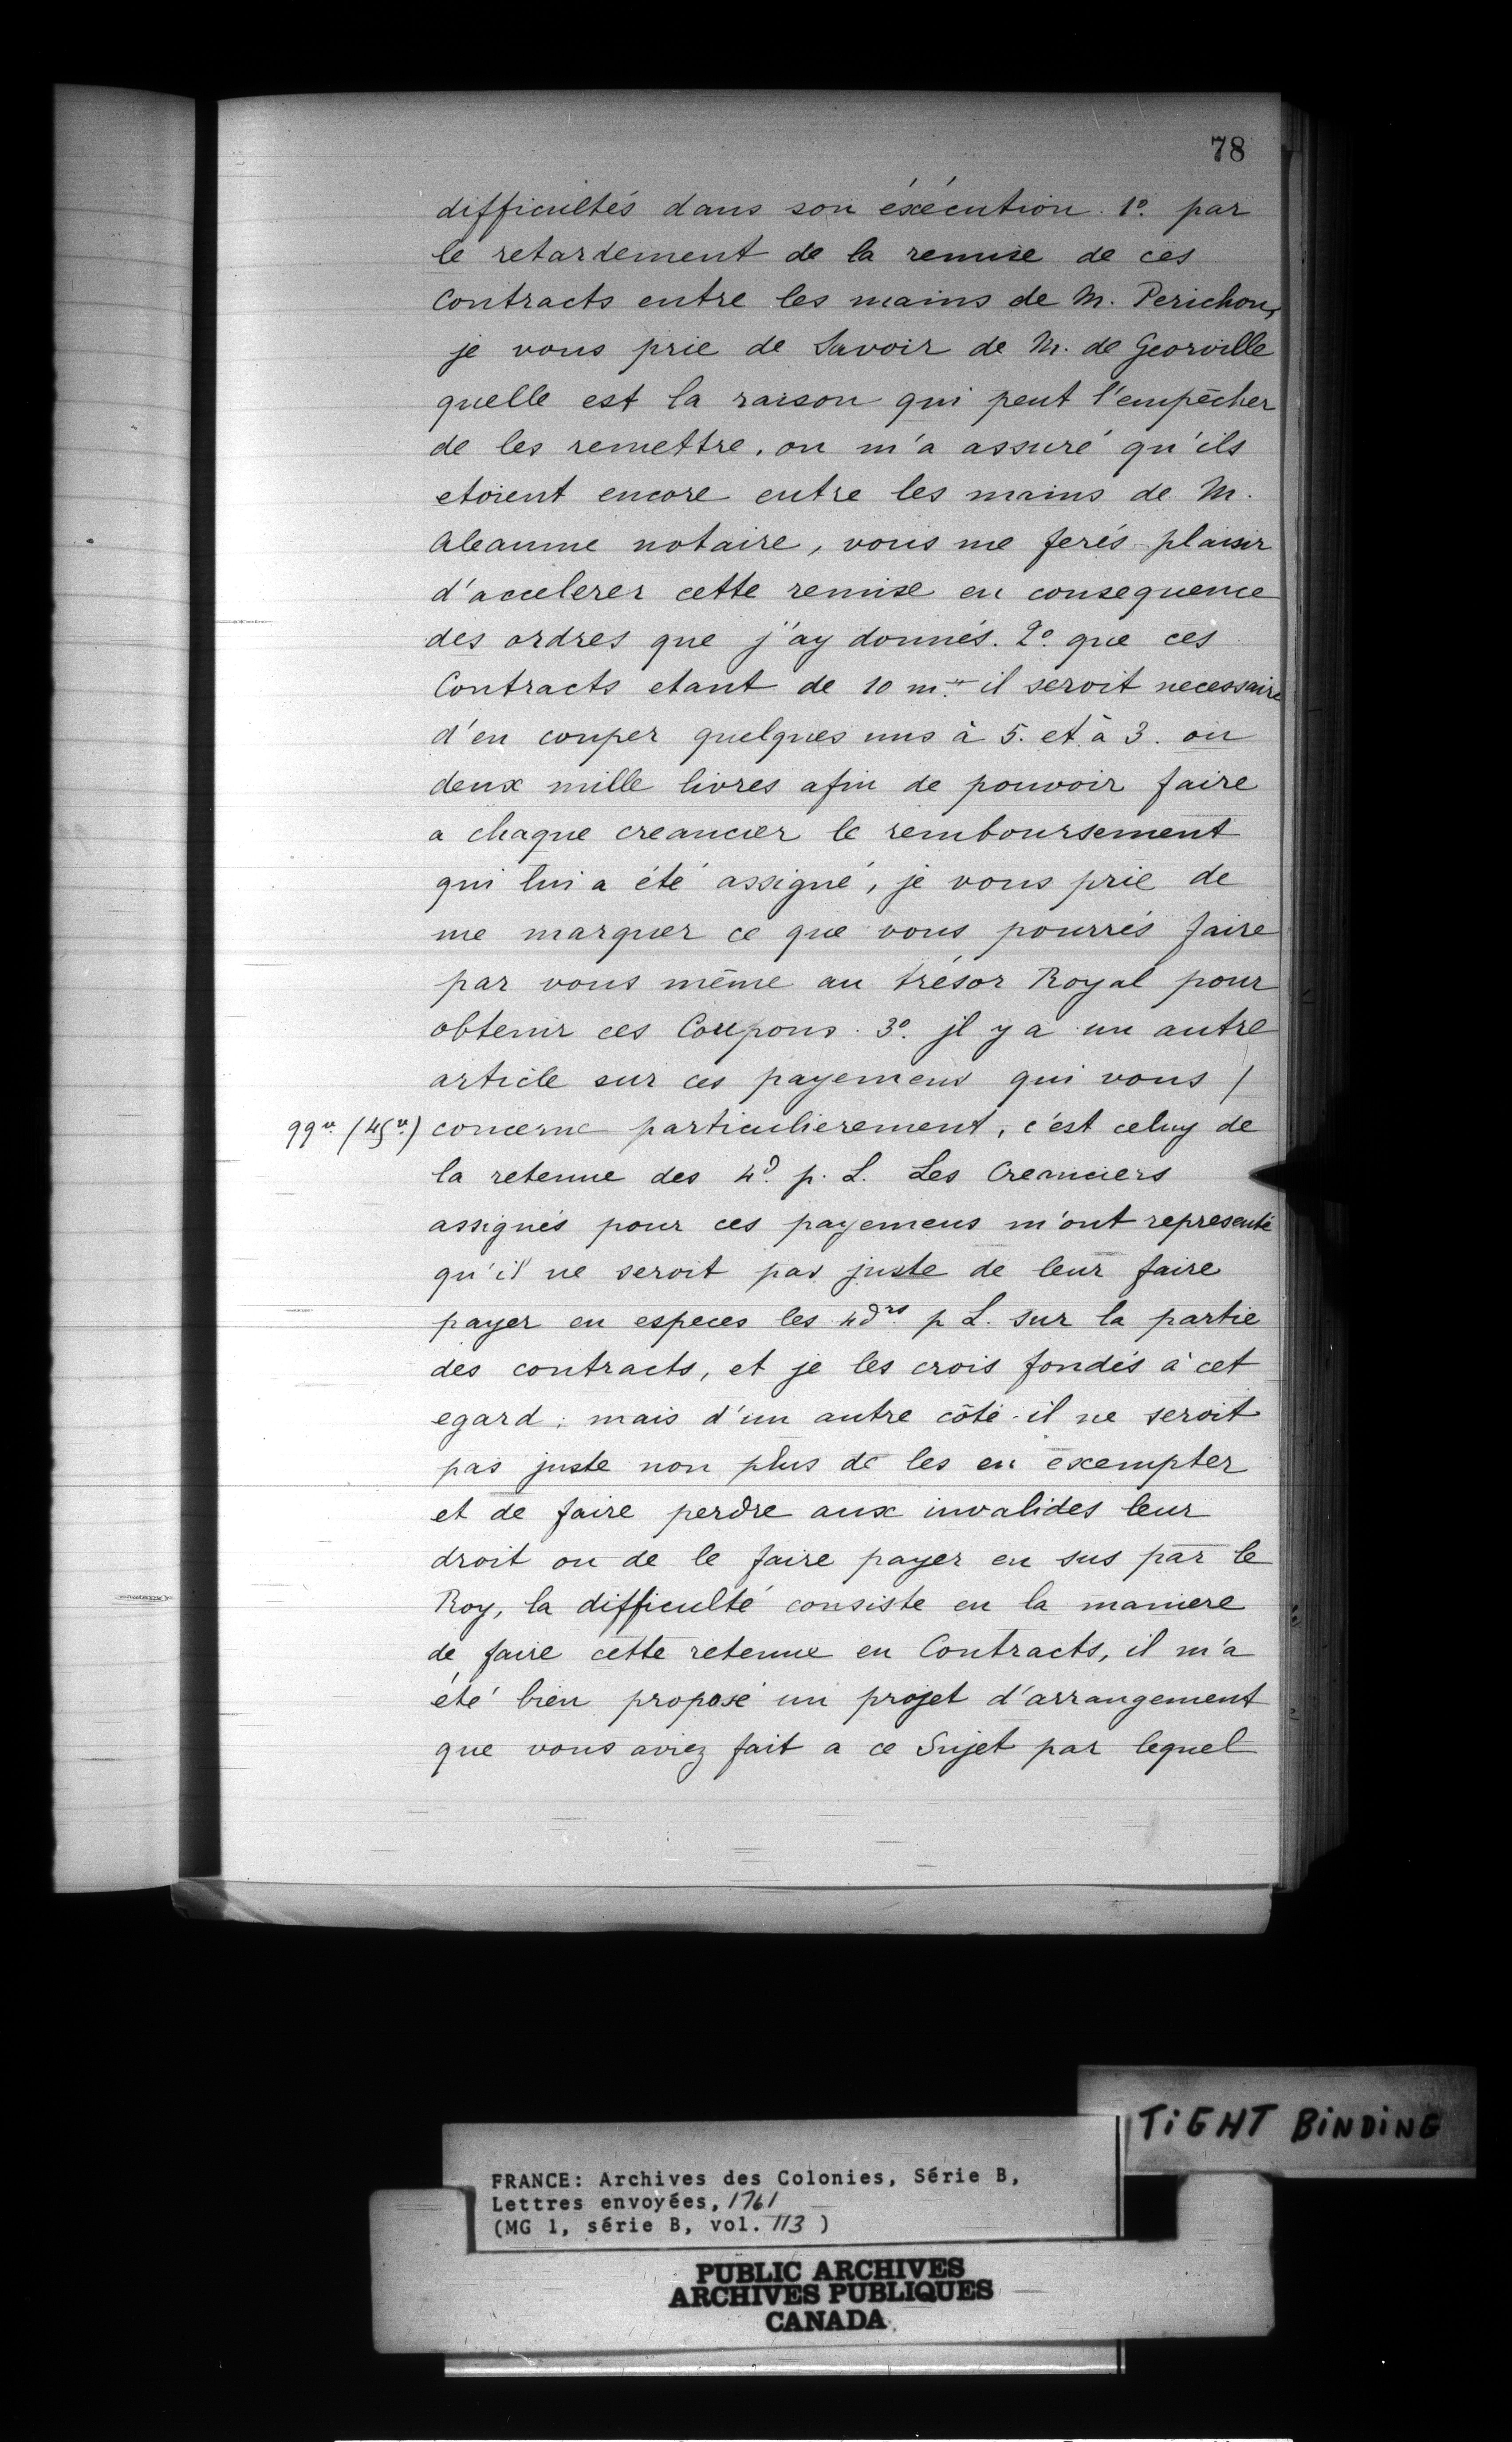 78
difficultés dans son éxécution. 1º. par
le retardement de la remise de ces
Contracts entre les mains de M. Perichon,
je vous prie de Savoir de M. de Georville
quelle est la raison qui peut l'empêcher
de les remettre. on m'a assuré qu'ils
etoient encore entre les mains de M.
Aleaume notaire, vous me ferés plaisir
d'accelerer cette remise en consequence
des ordres que j'ay donnés. 2º. que ces
Contracts etant de 10 m.᷒ il seroit necessaire
d'en couper quelques uns à 5. et à 3. ou
deux mille livres afin de pouvoir faire
a chaque creancier le remboursement
qui lui a été assigné, je vous prie de
me marquer ce que vous pourrés faire
par vous même au trésor Royal pour
obtenir ces Coupons. 3º. jl y a un autre
article sur ces payemens qui vous /
99vº. (45vº.) concerne particulierement, c'est celuy de
la retenue des 4ᵈ. p. L. Les Creanciers
assignés pour ces payemens m'ont representé
qu'il ne seroit pas juste de leur faire
payer en especes les 4 dʳˢ. p L. sur la partie
des contracts, et je les crois fondés à cet
egard; mais d'un autre côté il ne seroit
pas juste non plus de les en exempter
et de faire perdre aux invalides leur
droit ou de le faire payer en sus par le
Roy, la difficulté consiste en la maniere
de faire cette retenue en Contracts, il m'a
été bien proposé un projet d'arrangement
que vous aviez fait a ce Sujet par lequel
TIGHT BINDING
FRANCE: Archives des Colonies, Série B,
Lettres envoyées, 1761
(MG 1, série B, vol. 113 )
PUBLIC ARCHIVES
ARCHIVES PUBLIQUES
CANADA